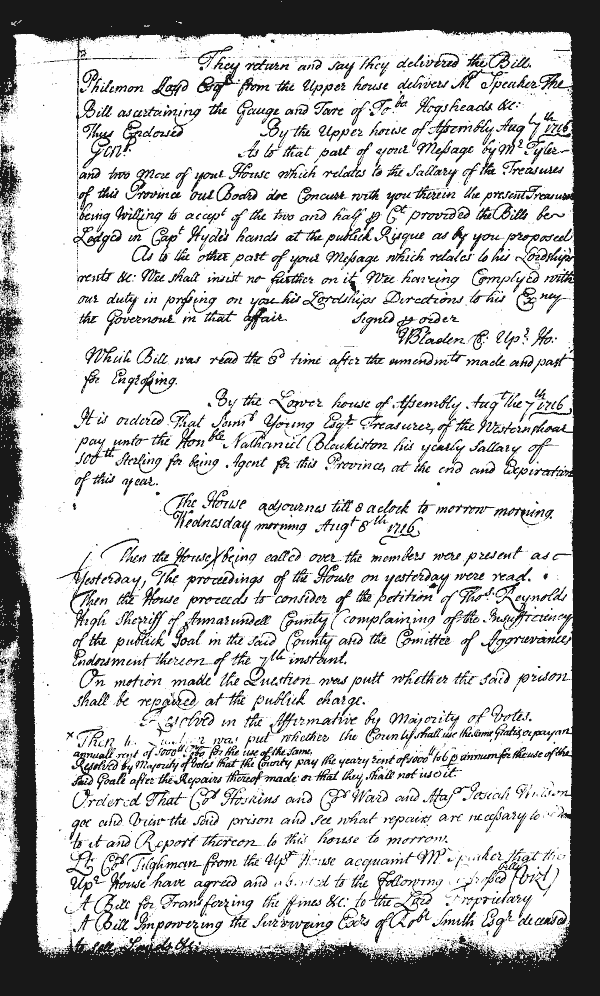 They return and say they delivered the Bill.
Philemon Lloyd Esqr from the Upper house delivers Mr Speaker The
Bill ascertaining the Gauge and Tare of Tobo Hogsheads &c:
Thus Endorsed By the Upper house of Assembly Aug 7th 1716
Gent. As to that part of your Message by Mr Tyler
and two More of your House which relates to the Sallary of the Treasures
of this Province our Board doe Concurr with you therein the present Treasurer
being Willing to accept of the two and half p Ct provided the Bills be
Lodged in Capt Hydes hands at the publick Risque as by you proposed
As to the other part of your Message which relates to his Lordships
rents &c: Wee shall insist no further on it, Wee haveing Complyed with
our duty in pressing on you his Lordships Directions to his Excy
the Governour in that affair. Signed p order
WBladen Cl. Upr. Ho:
Which Bill was read the 3d time after the amendmts made and past
for Engrossing.
By the Lower house of Assembly Augt the 7th 1716
It is ordered That Young Esqr Treasurer, of the Western shoar
pay unto the Honble Nathaniel Blackiston his yearly Sallary of
100th Sterling for being Agent for this Province, at the end and Expiration
of this year.
The House adjournes till 8 aclock to morrow morning.
Wednesday morning Augt 8th 1716
Then the House being called over the members were present as
Yesterday, The proceedings of the House on yesterday were read.
Then the House proceeds to consider of the petition of Thos. Reynolds
High Sheriff of Annarundell County complaining of the Insufficiency
of the publick Goal in the said County and the Comittee of Aggrievances
Endorsment thereon of the 7th instant.
On motion made the Question was putt whether the said prison
shall be repaired at the publick charge.
Resolved in the Affirmative by Majority of Votes.
x Then was put whether the County shall use the same Gratis or pay an
annuall rent of for the use of the same,
Resolved by Majority of Votes that the County pay the yeary rent of to p annum for the use of the
said Goale after the Repairs thereof made or that they shall not use it
Ordered That Cot Hoskins and Cot Ward and Majr Josiah Willson
goe and View the said prison and see what repairs are necessary to
to it and Report thereon to this house to morrow.
Lt. Cot Tilghman from the Upr House acquaint Mr Speaker that the
Upr House have agreed and to the following bills (vizt)
A Bill for Transferring the ffines &c: to the Lord Proprietary
A Bill Impowering the Surviveing Exrs of Robt Smith Esqr deceased
to sell Lands &c: